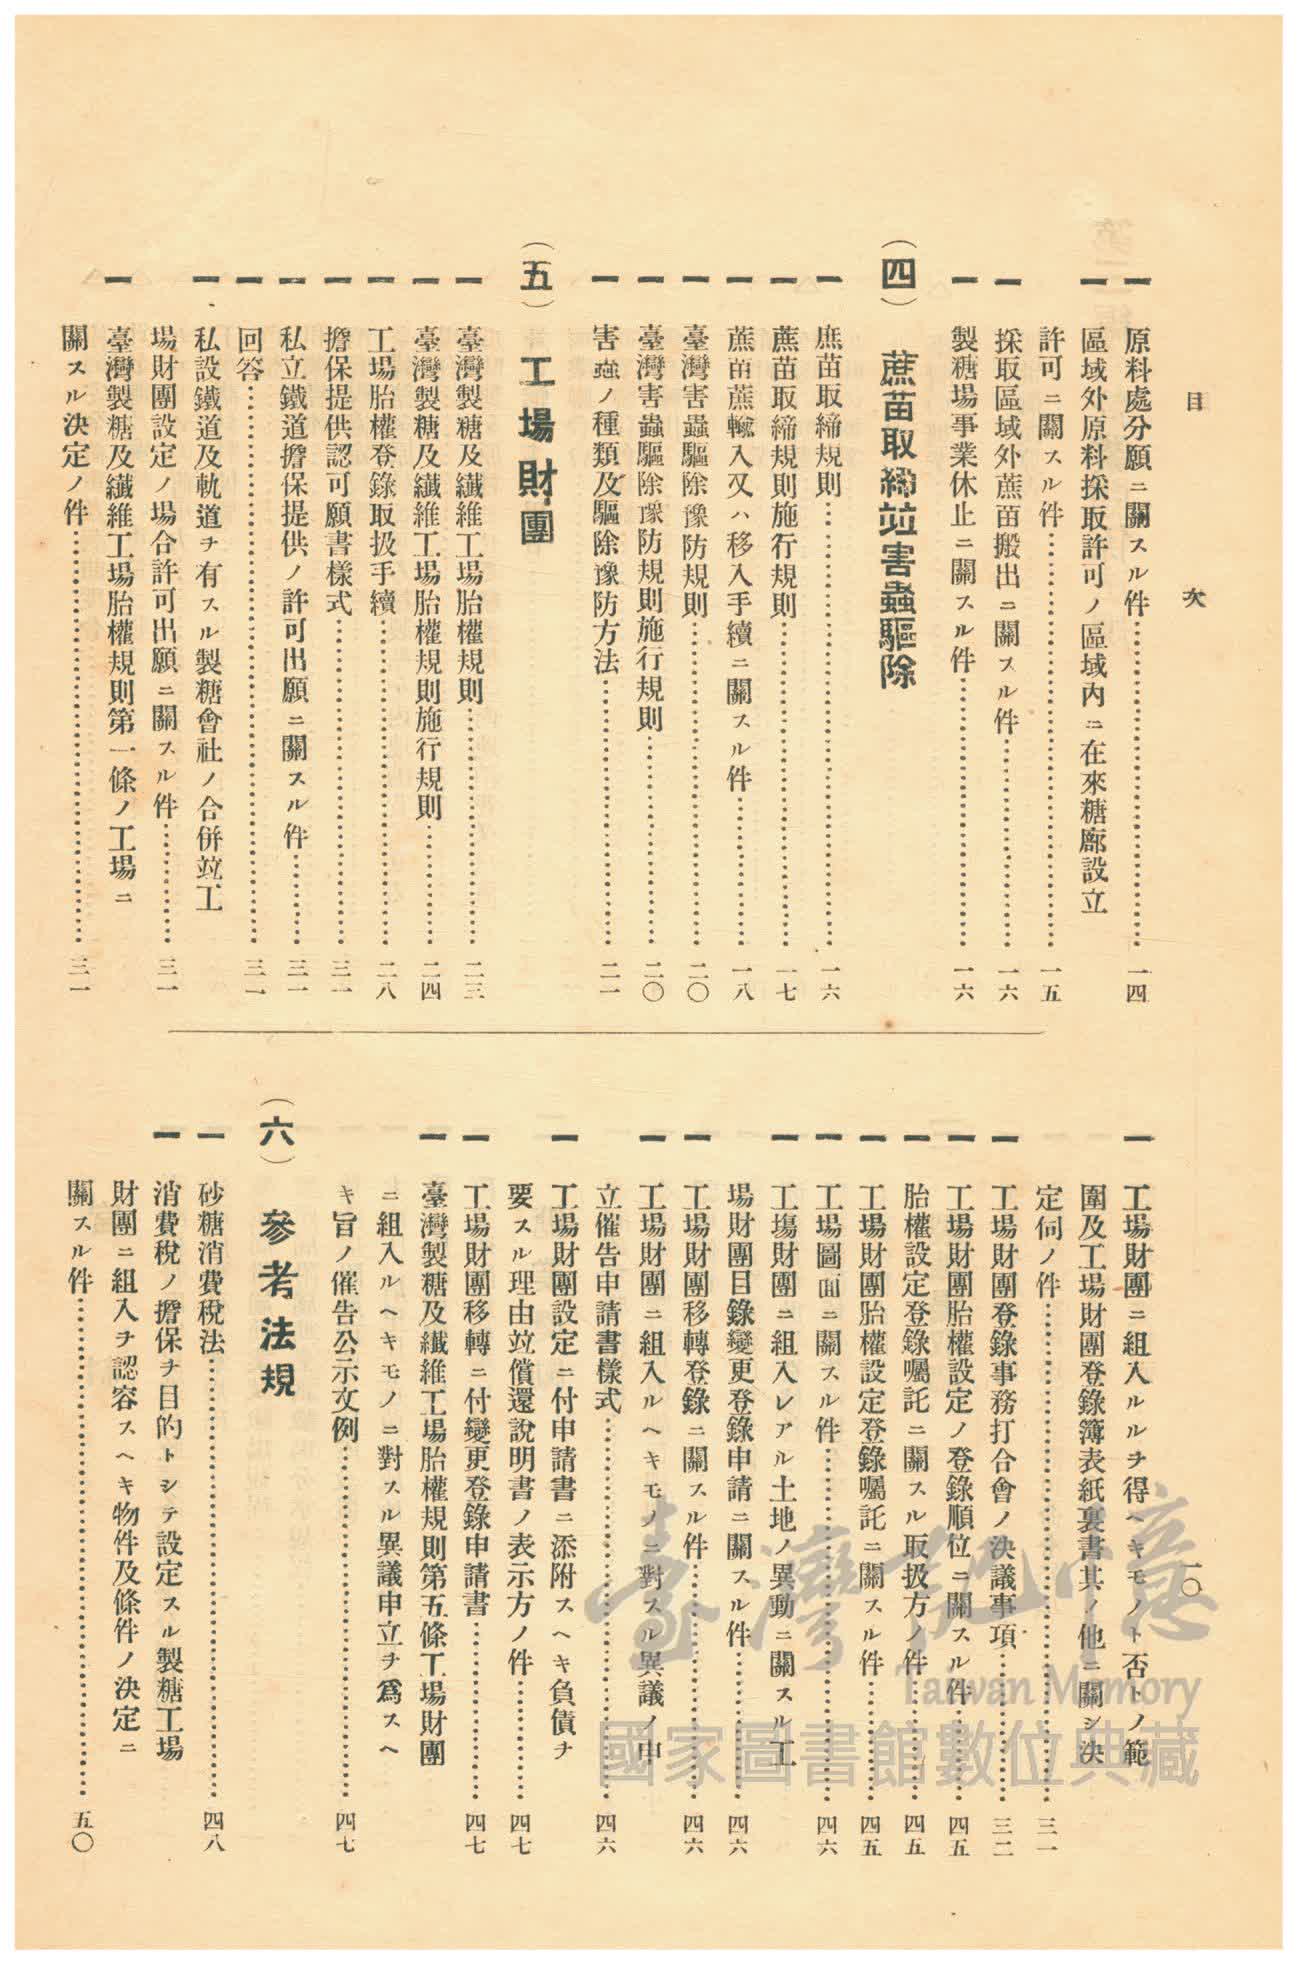 目次
一 原料處分願ニ關スル件…………一四
一 區域外原料採取許可ノ區域內ニ在來糖廍設立
許可ニ關スル件…………一五
一 採取區域外蔗苗搬出ニ關スル件…………一六
一 製糖場事業休止ニ關スル件…………一六
(四) 蔗苗取締竝害蟲驅除
一 蔗苗取締規則…………一六
一 蔗苗取締規則施行規則…………一七
一 蔗苗蔗輸入又ハ移入手續ニ關スル件…………一八
一 臺灣害蟲驅除豫防規則…………二〇
一 臺灣害蟲驅除豫防規則施行規則…………二〇
一 害蟲ノ種類及驅除豫防方法…………二一
(五) 工場財團
一 臺灣製糖及纖維工場胎權規則…………二三
一 臺灣製糖及纖維工場胎權規則施行規則…………二四
一 工場胎權登錄取扱手續…………二八
一 擔保提供認可願書樣式…………三一
一 私立鐵道擔保提供ノ許可出願ニ關スル件…………三一
一 回答…………三一
一 私設鐵道及軌道ヲ有スル製糖會社ノ合併竝工
場財團設定ノ場合許可出願ニ關スル件…………三一
一 臺灣製糖及纖維工場胎權規則第一條ノ工場ニ
關スル決定ノ件…………三一
一〇
一 工場財團ニ組入ルルヲ得ヘキモノト否トノ範
圍及工場財團登錄簿表紙裏書其ノ他ニ關シ決
定伺ノ件…………三一
一 工場財團登錄事務打合會ノ決議事項…………三二
一 工場財團胎權設定ノ登錄順位ニ關スル件…………四五
一 胎權設定登錄囑託ニ關スル取扱方ノ件…………四五
一 工場財團胎權設定登錄囑託ニ關スル件…………四五
一 工場圖面ニ關スル件…………四六
一 工場財團ニ組入レアル土地ノ異動ニ關スル工
場財團目錄變更登錄申請ニ關スル件…………四六
一 工場財團移轉登錄ニ關スル件…………四六
一 工場財團ニ組入ルヘキモノニ對スル異議ノ申
立催告申請書樣式…………四六
一 工場財團設定ニ付申請書ニ添附スヘキ負債ヲ
要スル理由竝償還說明書ノ表示方ノ件…………四七
一 工場財團移轉ニ付變更登錄申請書…………四七
一 臺灣製糖及纖維工場胎權規則第五條工場財團
ニ組入ルヘキモノニ對スル異議申立ヲ爲スヘ
キ旨ノ催告公示文例…………四七
(六) 參考法規
一 砂糖消費稅法…………四八
一 消費稅ノ擔保ヲ目的トシテ設定スル製糖工場
財團ニ組入ヲ認容スヘキ物件及條件ノ決定ニ
關スル件…………五〇
臺灣記憶
Taiwan Memory
國家圖書館數位典藏